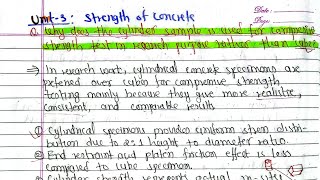 Date :
Page :
Unit-3 : Strength of concrete
Q. Why does the cylinder sample is used for compressive
strength test in research purpose rather than cube?
⇒ In research work, cylindrical concrete specimens are
prefered over cubes for compressive strength
testing mainly because they give more realistic,
consistent, and comparable results
① Cylindrical specimens provides uniform stress distri-
bution due to 2:1 height to diameter ratio.
② End restraint and platen friction effect is less
compared to cube specimen.
Cylinder strength represents actual in-situ